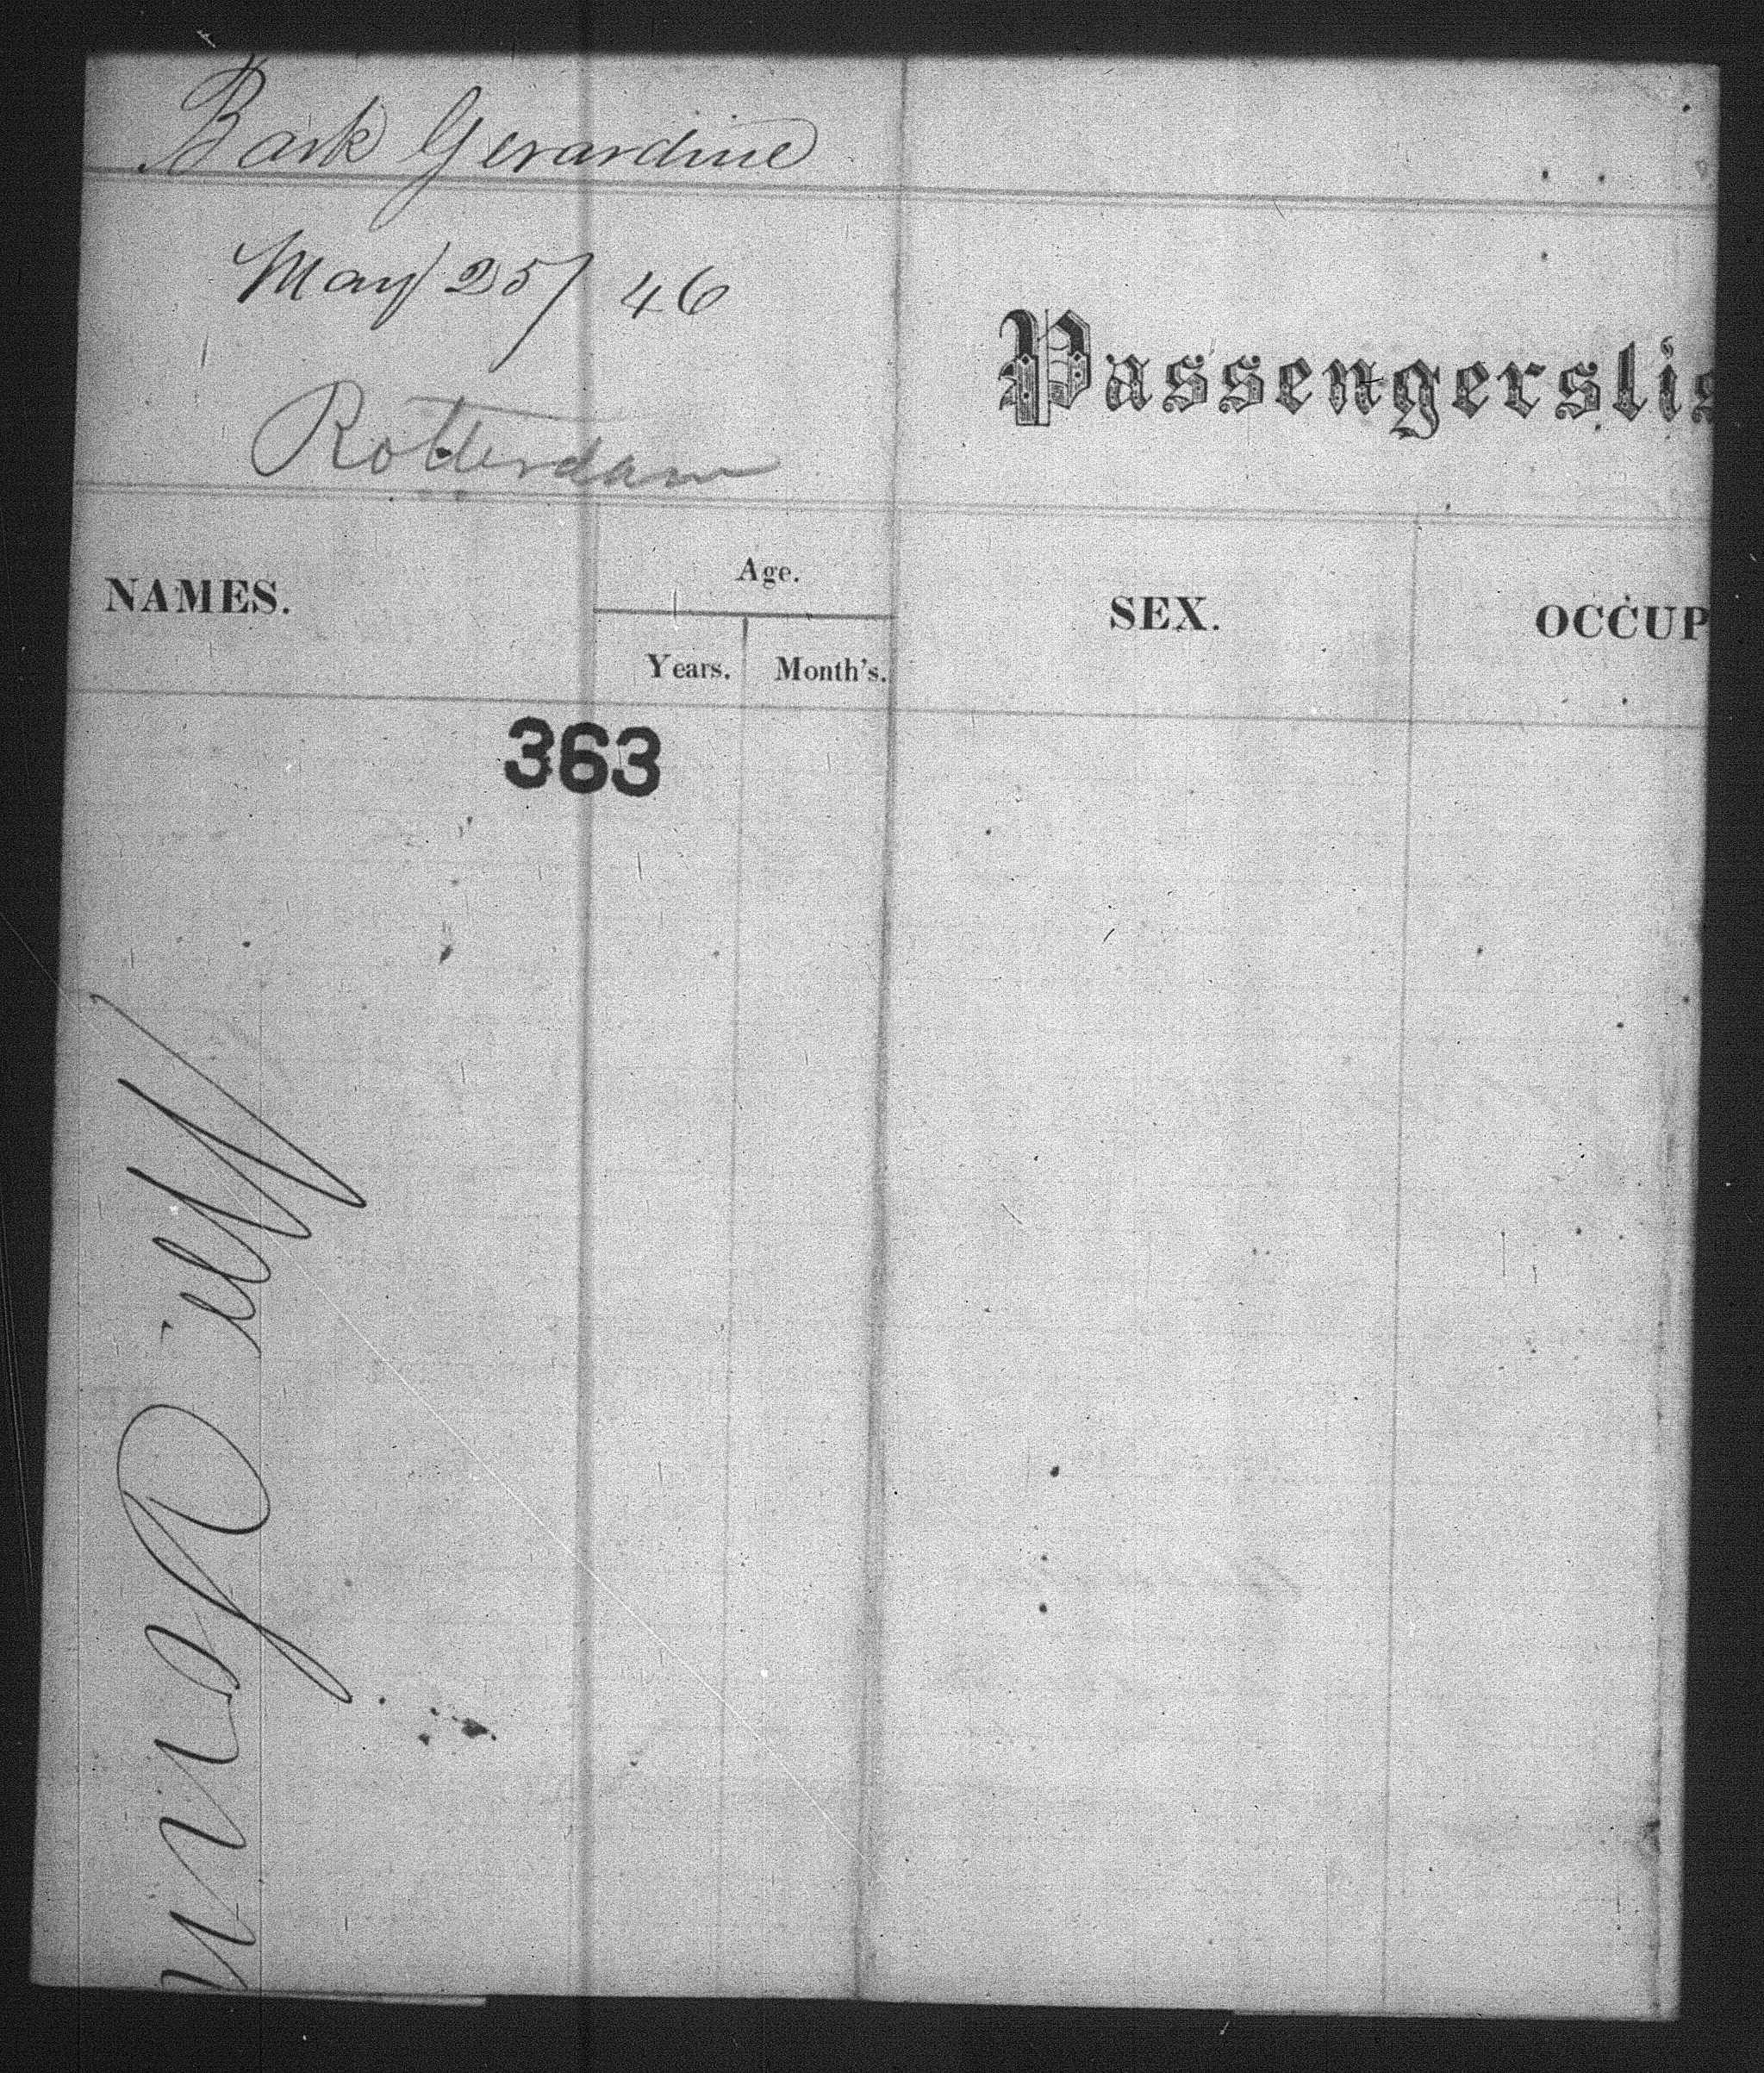 Bark Gerardine
May 25/46
Rotterdam
Passengerslis
NAMES.
Age.
Years.
Month's.
SEX.
OCCUP
363